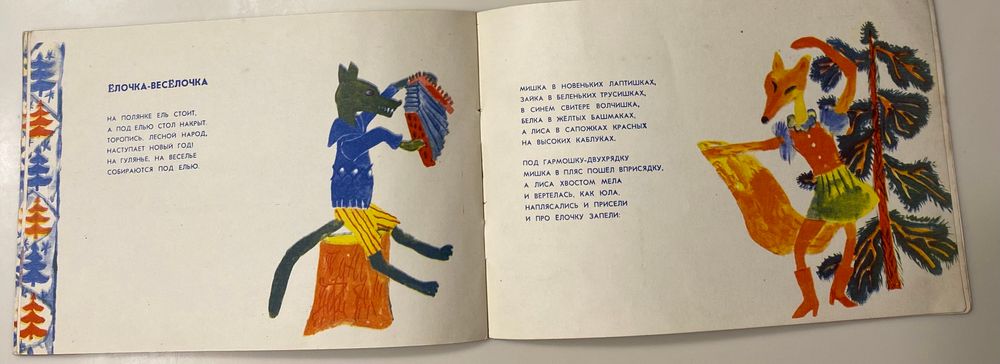 ЁЛОЧКА-ВЕСЁЛОЧКА
НА ПОЛЯНКЕ ЕЛЬ СТОИТ,
А ПОД ЕЛЬЮ СТОЛ НАКРЫТ.
ТОРОПИСЬ, ЛЕСНОЙ НАРОД,
НАСТУПАЕТ НОВЫЙ ГОД!
НА ГУЛЯНЬЕ, НА ВЕСЕЛЬЕ
СОБИРАЮТСЯ ПОД ЕЛЬЮ.
МИШКА В НОВЕНЬКИХ ЛАПТИШКАХ,
ЗАЙКА В БЕЛЕНЬКИХ ТРУСИШКАХ,
В СИНЕМ СВИТЕРЕ ВОЛЧИШКА,
БЕЛКА В ЖЁЛТЫХ БАШМАКАХ,
А ЛИСА В САПОЖКАХ КРАСНЫХ
НА ВЫСОКИХ КАБЛУКАХ.
ПОД ГАРМОШКУ-ДВУХРЯДКУ
МИШКА В ПЛЯС ПОШЕЛ ВПРИСЯДКУ,
А ЛИСА ХВОСТОМ МЕЛА
И ВЕРТЕЛАСЬ, КАК ЮЛА.
НАПЛЯСАЛИСЬ И ПРИСЕЛИ
И ПРО ЁЛОЧКУ ЗАПЕЛИ: